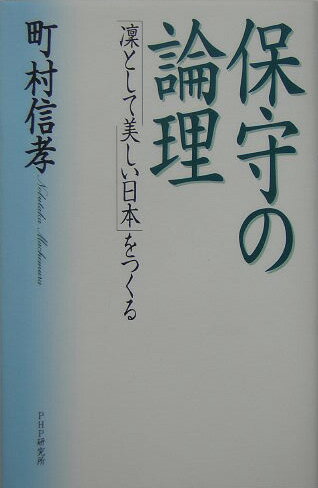 保守の
論理
「凛として美しい日本」をつくる
町村信孝
Nobutaka Machimura
PHP研究所